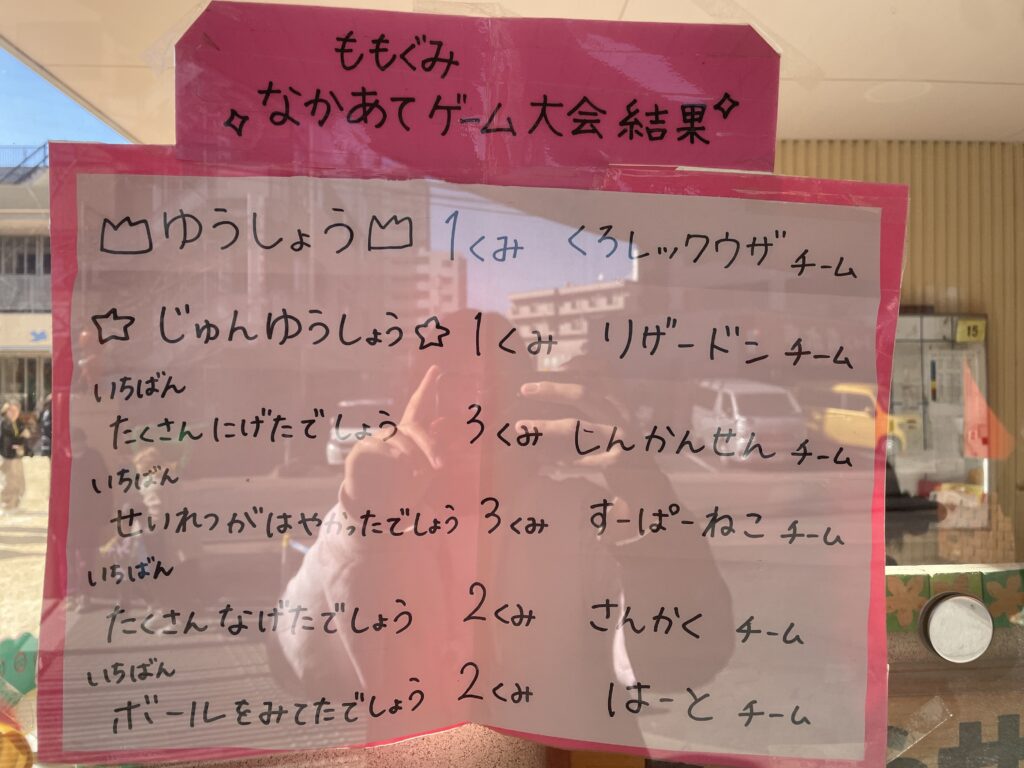 ももぐみ
なかあてゲーム大会結果
ゆうしょう 1くみ くろレックウザチーム
じゅんゆうしょう 1くみ リザードンチーム
いちばん
たくさんにげたでしょう 3くみ しんかんせんチーム
いちばん
せいれつがはやかったでしょう 3くみ すーぱーねこチーム
いちばん
たくさんなげたでしょう 2くみ さんかくチーム
いちばん
ボールをみてたでしょう 2くみ はーとチーム
15